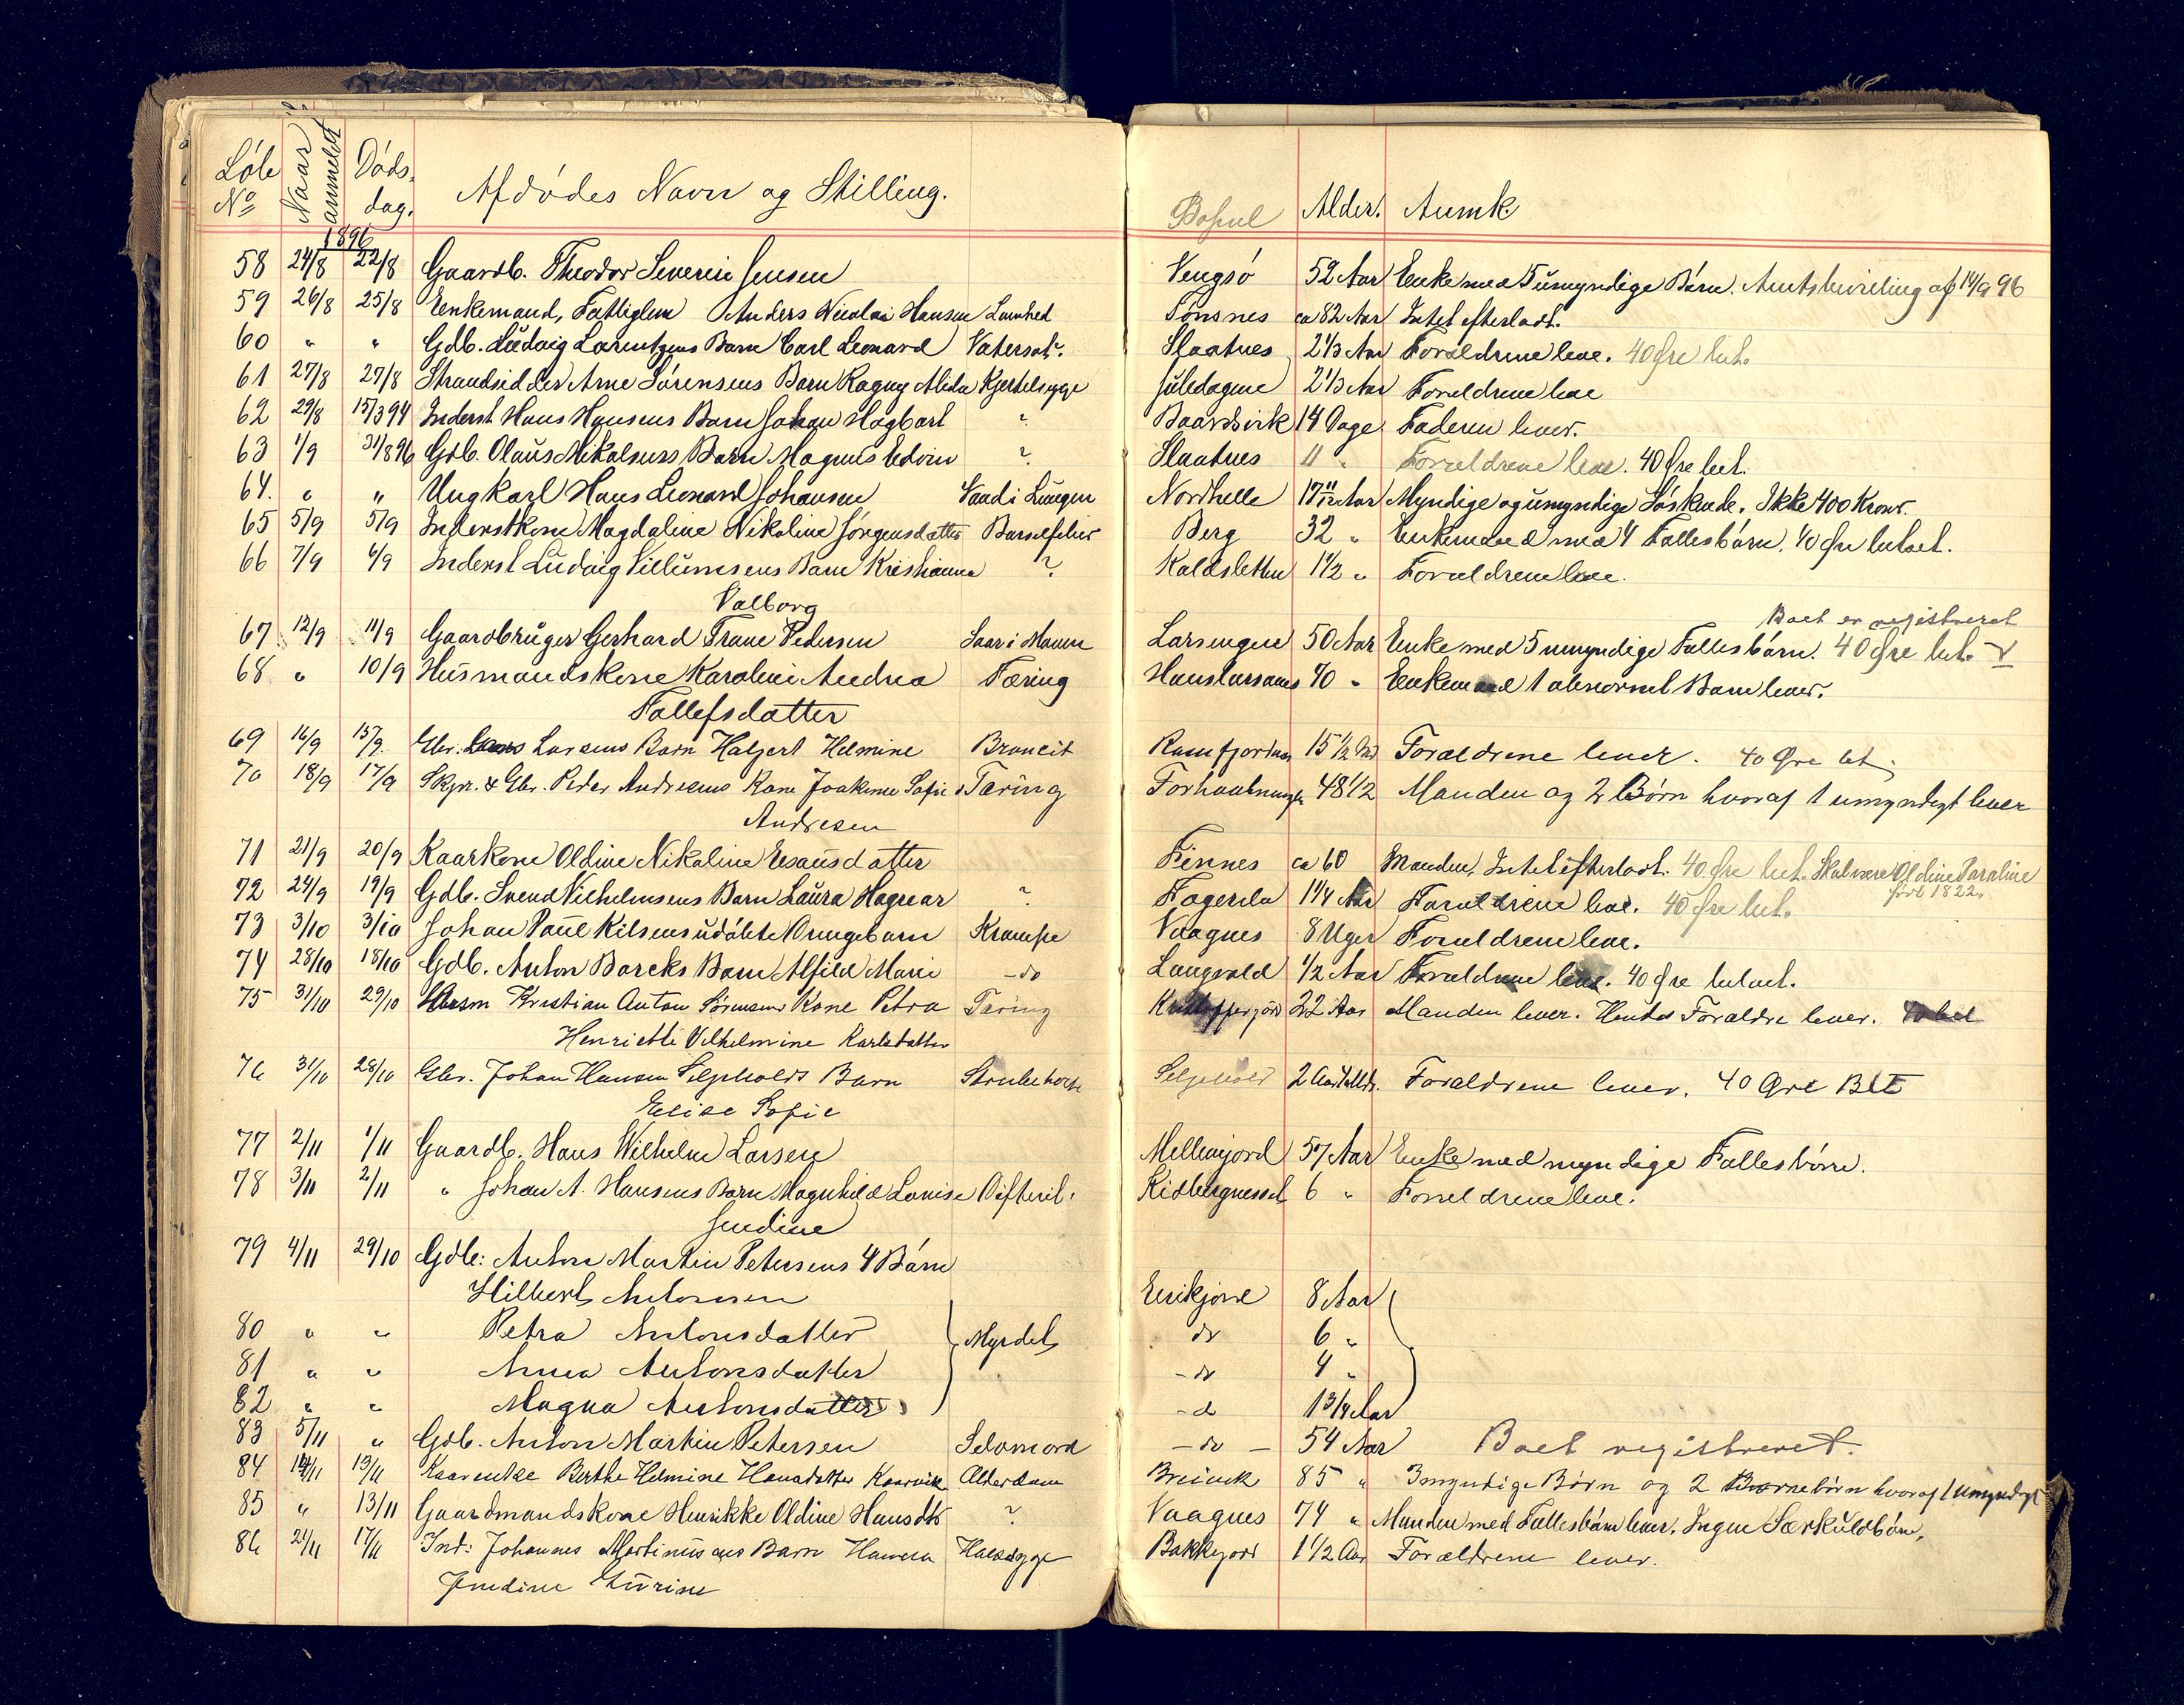 Löbe No Naar anmeldt Döds dag. Afdödes Navn og Stilling. Bopæl Alder. Anmk.
1896
58 24/8 22/8 Gaardb. Theodor Severin Jensen Vengsö 52 Aar Enke med 5 umyndige Börn. Amtsbevilling af 14/9 96
59 26/8 25/8 Enkemand, Fattiglem Anders Nicolai Hansen Lamhed Sönsnes ca 82 Aar Intet efterladt.
60 " " Gdb. Ludvig Lorentzens Barn Carl Leonard Vatersot. Slaatnes 2 1/3 Aar Forældrene leve. 40 Öre bet.
61 27/8 27/8 Strandsidder Arne Sörensens Barn Ragna Alida Kjertelsyge 2 1/3 Aar Forældrene leve
62 29/8 15/3 94 Inderst Hans Hansens Barn Johan Hagbart ? Baardsvik 14 Dage Faderen lever.
63 1/9 31/8 96 Gdb. Olaus Mikalsens Barn Magnus Edvin ? Slaatnes 11 " Forældrene leve. 40 Öre bet.
64. " " Ungkarl Hans Leonard Johansen Vand i Lungen Nordhelle 17 11/12 Aar Myndige og umyndige Söskende. Ikke 400 Kroner.
65 5/9 5/9 Inderstkone Magdaline Nikoline Jörgensdatter Barselfeber Berg 32 " Enkemand med 4 Fællesbörn. 40 Öre betalt.
66 7/9 6/9 Inderst Ludvig Villumsens Barn Kristianna ? Kaldsletten 1 1/2 " Forældrene leve.
Valborg
Boet er registreret
67 12/9 11/9 Gaardbruger Gerhard Trane Pedersen Saar i Maven Larsengen 50 Aar Enke med 5 umyndige Fællesbörn. 40 Öre bet.
68 " 10/9 Husmandskone Karoline Andrea Tæring 40 " Enkemand 1 abnormt Barn lever.
Tollefsdatter
69 16/9 15/9 Gbr. Larsens Barn Halgert Helmine Broncit Ramfjordnes 15 1/2 Forældrene lever. 40 Öre bet.
70 18/9 17/9 Skpr. & Gbr. Peder Andresens Kone Joakime Sofie Tæring 48 1/2 Manden og 2 Börn hvoraf 1 umyndigt lever
Andresen
71 21/9 20/9 Kaarkone Oldine Nikoline Esausdatter Finnes ca 60 Manden. Intet efterladt. 40 Öre bet. Skal være Oldine Paraline
född 1822.
72 24/9 19/9 Gdb. Svend Vilhelmsens Barn Laura Hagnar ? Fagerelv 1 1/4 Aar Forældrene leve. 40 Öre bet.
73 3/10 3/10 Johan Paul Kilsens udöbte Drengebarn Krampe Vaagnes 8 Uger Forældrene leve.
74 28/10 18/10 Gdb. Anton Barcks Barn Alfild Marie - do Langvold 1/2 Aar Forældrene leve. 40 Öre betalt.
75 31/10 29/10 Husm Kristian Anton Sörensens Kone Petra Tæring 22 Aar Manden lever. Hendes Forældre lever.
Henriette Vilhelmine Karlsdatter
76 31/10 28/10 Gbr. Johan Hansen Seljeholds Barn Strubehoste Seljehold 2 Aar Forældrene lever. 40 Öre Bet
Elise Sofie
77 2/11 1/11 Gaardb. Hans Wilhelm Larsen Mellemjord 57 Aar Enke med myndige Fællesbörn.
78 3/11 2/11 " Johan A. Hansens Barn Magnhild Lovise Difterit. 6 " Forældrene leve.
Jendine
79 4/11 29/10 Gdb: Anton Martin Petersens 4 Börn
Hilbert Antonsen Erikjord 8 Aar
80 " " Petra Antonsdatter Myrdet do 6 "
81 " " Anna Antonsdatter - do 4 "
82 " " Magna Antonsdatter - do 1 3/4 Aar
83 5/11 " Gdb. Anton Martin Petersen Selvmord - do - 54 Aar Boet registreret.
84 14/11 13/11 Kaarenke Berthe Helmine Hansdatter Kaarvik Alderdom Breivik 85 " 3 myndige Börn og 2 Barnebörn hvoraf 1 umyndigt
85 " 13/11 Gaardmandskone Henrikke Oldine Hansdtr ? Vaagnes 74 " Manden med Fællesbörn lever. Ingen Særkuldbörn.
86 21/11 17/11 Ind: Johannes Martinusens Barn Halssyge Bakkejord 1 1/2 Aar Forældrene lever.
Jendine